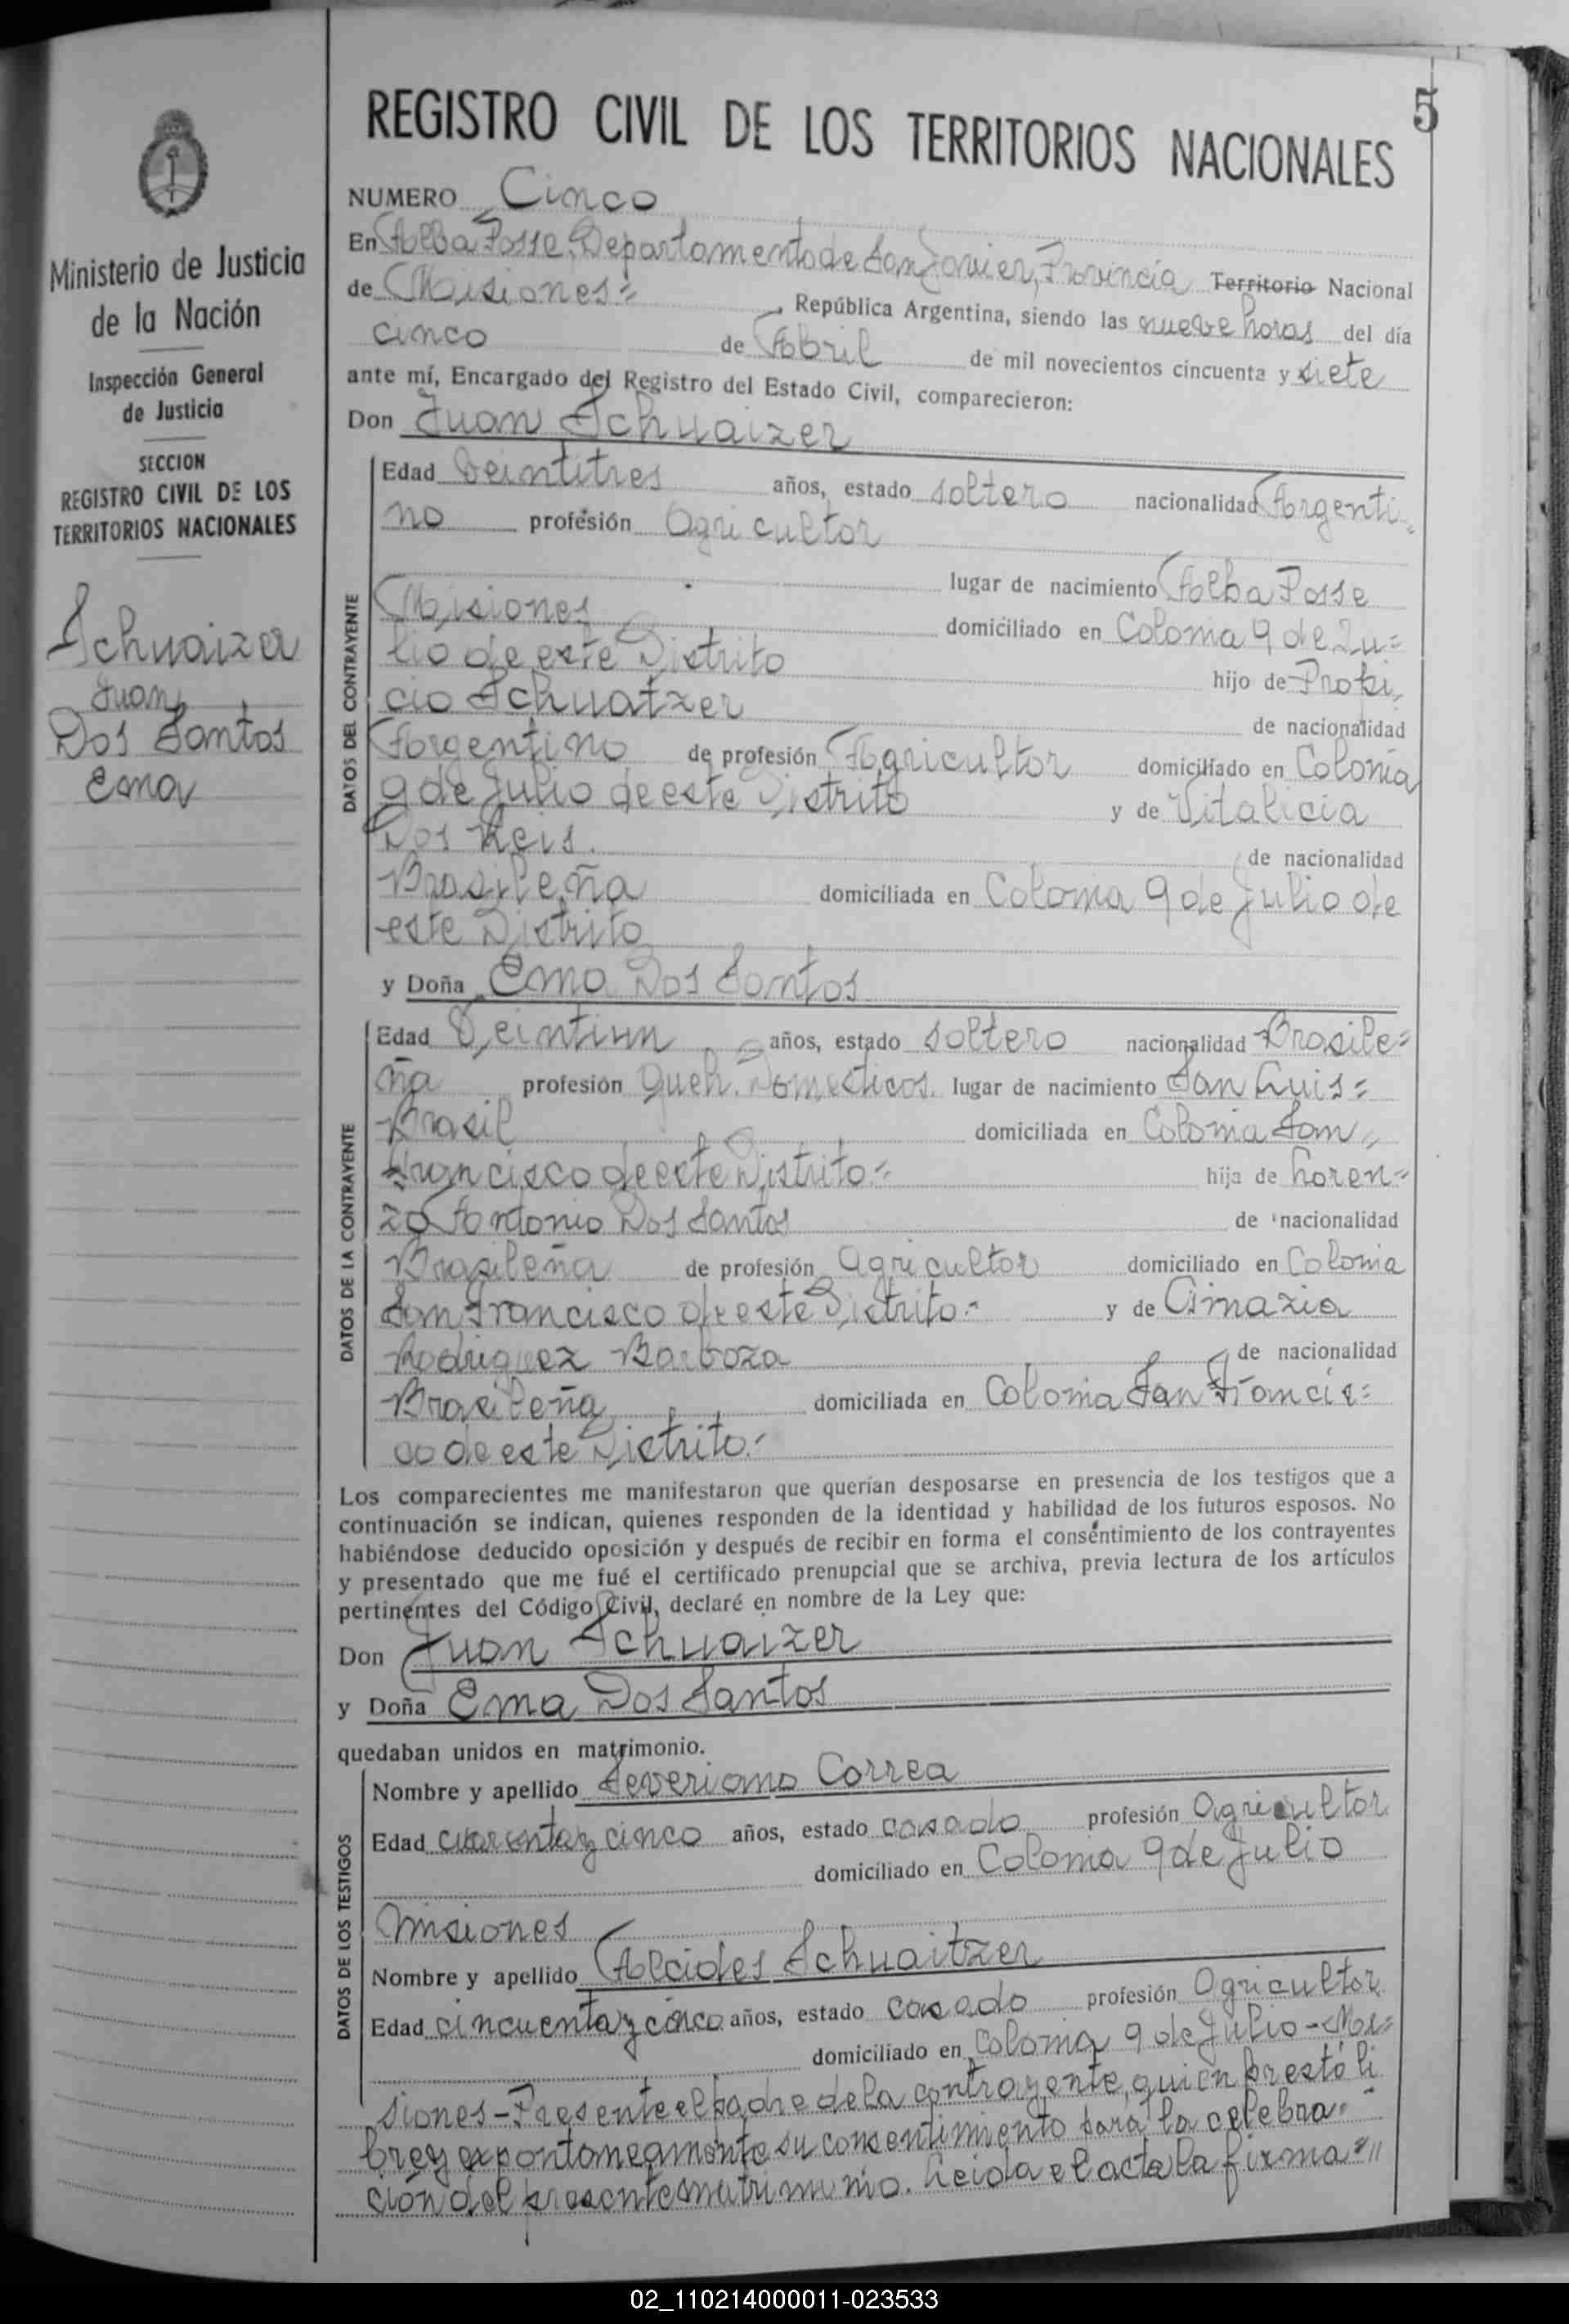 5
REGISTRO CIVIL DE LOS TERRITORIOS NACIONALES
Ministerio de Justicia
de la Nación
Inspección General
de Justicia
SECCION
REGISTRO CIVIL DE LOS
TERRITORIOS NACIONALES
Schuaizer
Juan
Dos Santos
Ema
NUMERO Cinco
En Alba Posse, Departamento de San Javier, Provincia Territorio Nacional
de Misiones= , República Argentina, siendo las nueve horas del día
cinco de Abril de mil novecientos cincuenta y siete
ante mí, Encargado del Registro del Estado Civil, comparecieron:
Don Juan Schuaizer
DATOS DEL CONTRAYENTE
Edad Veintitres años, estado soltero nacionalidad Argenti-
no profesión Agricultor
lugar de nacimiento Alba Posse
Misiones domiciliado en Colonia 9 de Ju=
lio de este Distrito hijo de
cio Schuatzer de nacionalidad
Argentino de profesión Agricultor domiciliado en Colonia
9 de Julio de este Distrito y de Vitalicia
Dos Reis. de nacionalidad
Brasileña domiciliada en Colonia 9 de Julio de
este Distrito
y Doña Ema Dos Santos
DATOS DE LA CONTRAYENTE
Edad Veintiun años, estado soltero nacionalidad Brasile=
ña profesión Queh. Domesticos. lugar de nacimiento San Luis=
Brasil domiciliada en Colonia San
Francisco de este Distrito.= hija de Loren=
zo Antonio Dos Santos de nacionalidad
Brasileña de profesión Agricultor domiciliado en Colonia
San Francisco de este Distrito.= y de
Rodriguez Barboza de nacionalidad
Brasileña domiciliada en Colonia San Francis=
co de este Distrito.=
Los comparecientes me manifestaron que querían desposarse en presencia de los testigos que a
continuación se indican, quienes responden de la identidad y habilidad de los futuros esposos. No
habiéndose deducido oposición y después de recibir en forma el consentimiento de los contrayentes
y presentado que me fué el certificado prenupcial que se archiva, previa lectura de los artículos
pertinentes del Código Civil, declaré en nombre de la Ley que:
Don Juan Schuaizer
y Doña Ema Dos Santos
quedaban unidos en matrimonio.
DATOS DE LOS TESTIGOS
Nombre y apellido Severiano Correa
Edad cuarenta y cinco años, estado casado profesión Agricultor
domiciliado en Colonia 9 de Julio
Misiones
Nombre y apellido Alcides Schuaitzer
Edad cincuenta y cinco años, estado casado profesión Agricultor
domiciliado en Colonia 9 de Julio-Mi=
siones-Presente el padre de la contrayente, quien prestó li
bre y expontaneamente su consentimiento para la celebra=
ción del presente matrimonio. Leida el acta la firma="
02_110214000011-023533